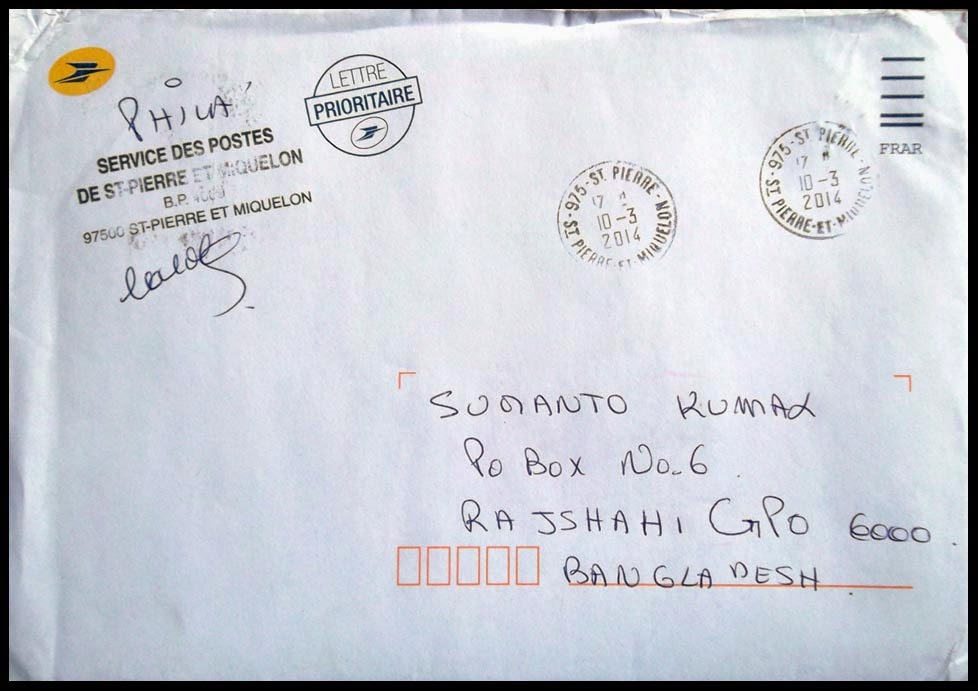 PHILA
SERVICE DES POSTES
DE ST-PIERRE ET MIQUELON
B.P.
97500 ST-PIERRE ET MIQUELON
LETTRE
PRIORITAIRE
975-ST PIERRE
17
10-3
2014
ST PIERRE-ET-MIQUELON
975-ST PIERRE
17
10-3
2014
ST PIERRE-ET-MIQUELON
FRAR
SUMANTO KUMAR
PO BOX No-6
RAJSHAHI GPO 6000.
BANGLADESH